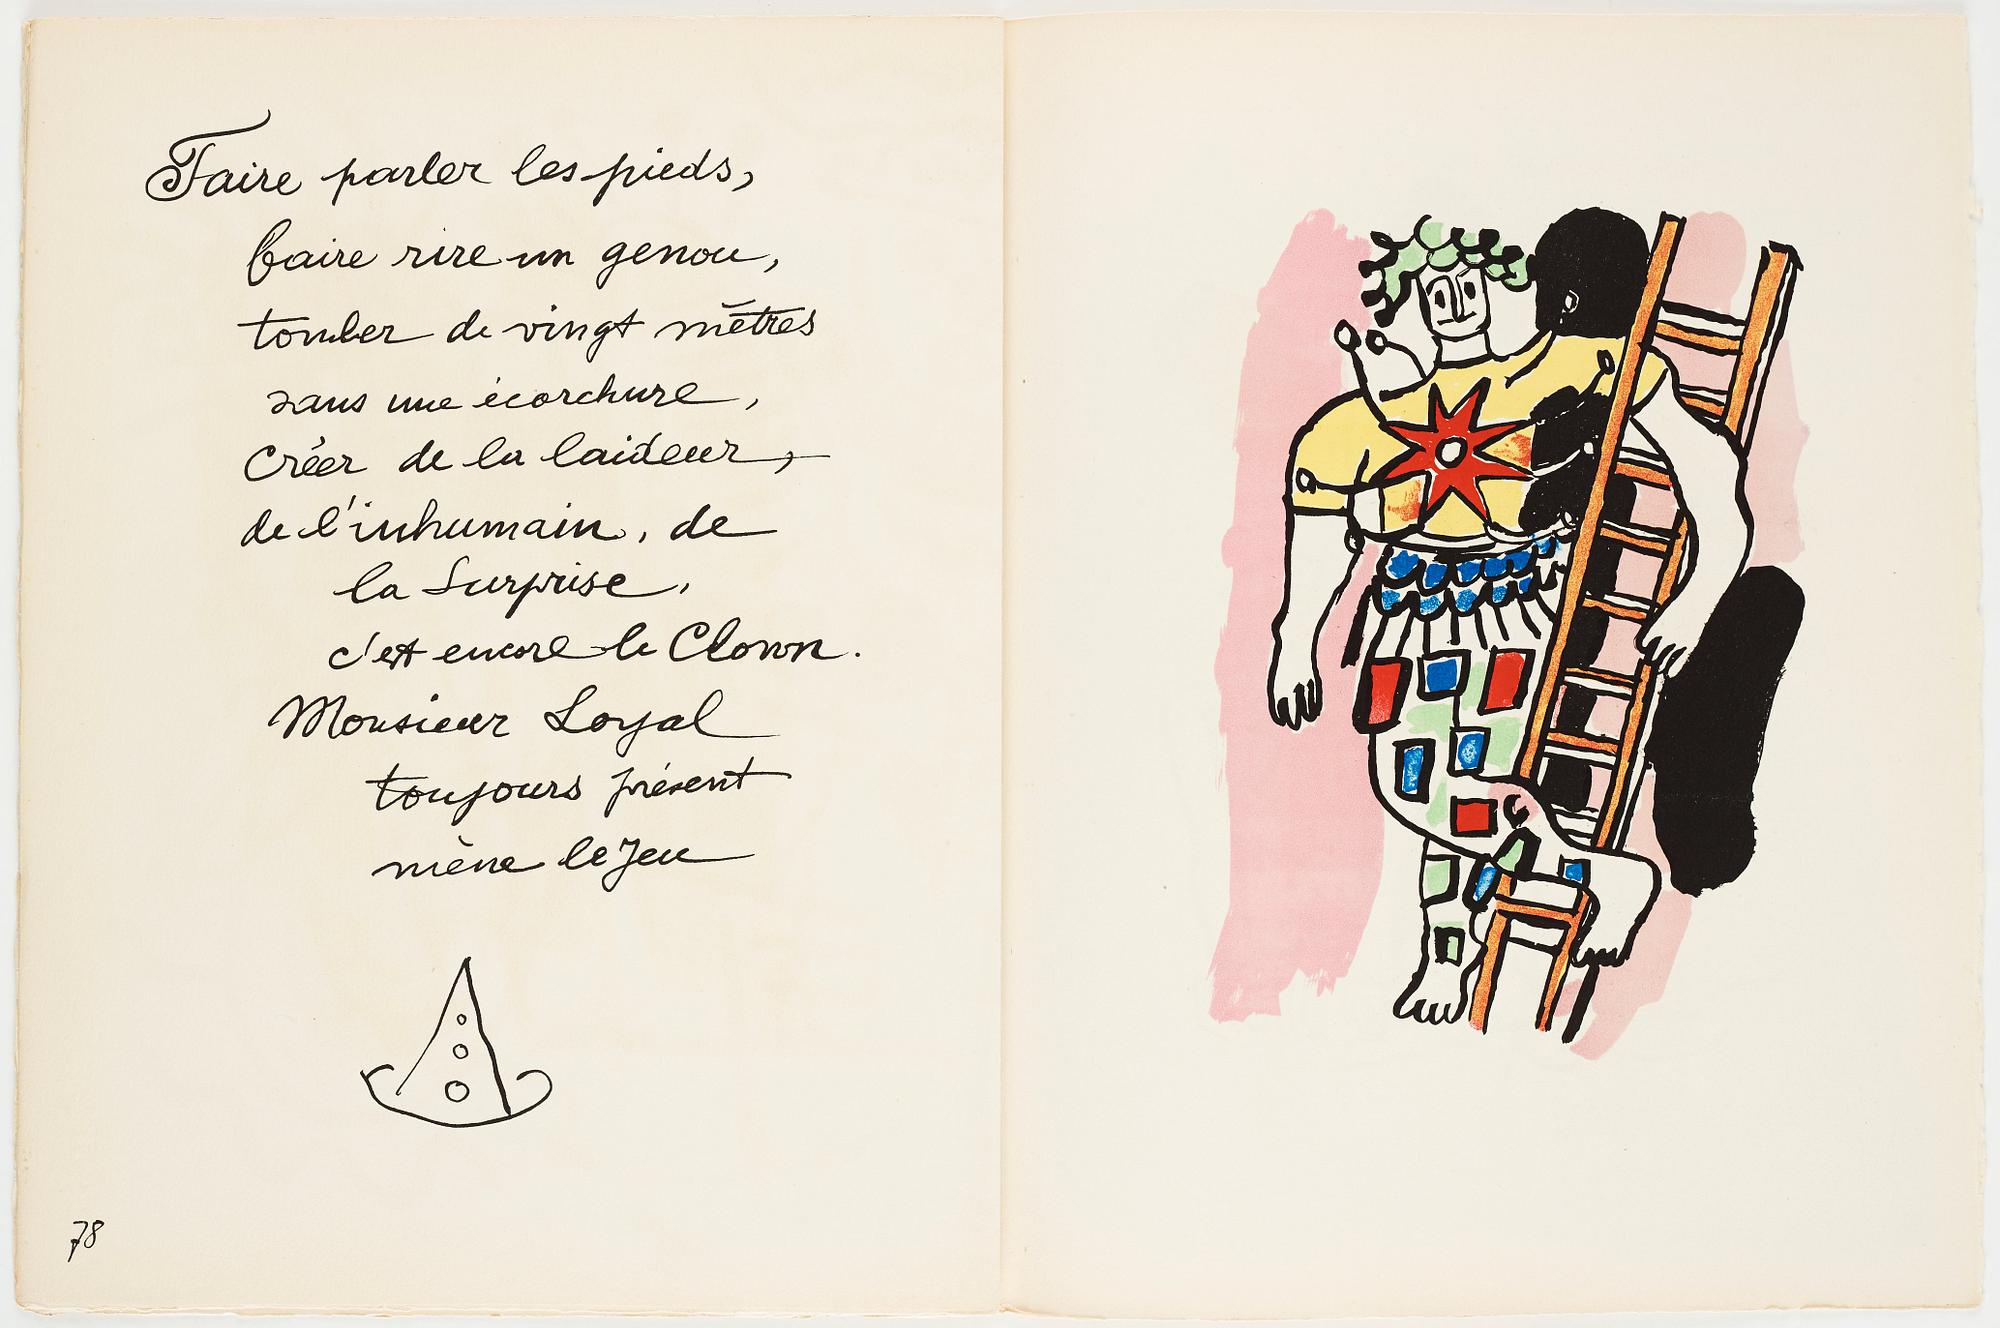 Faire parler les pieds,
faire rire un genou,
tomber de vingt mètres
sans une écorchure,
Créer de la laideur,
de l'inhumain, de
la Surprise,
c'est encore le Clown.
Monsieur Loyal
toujours présent
mène le Jeu
78